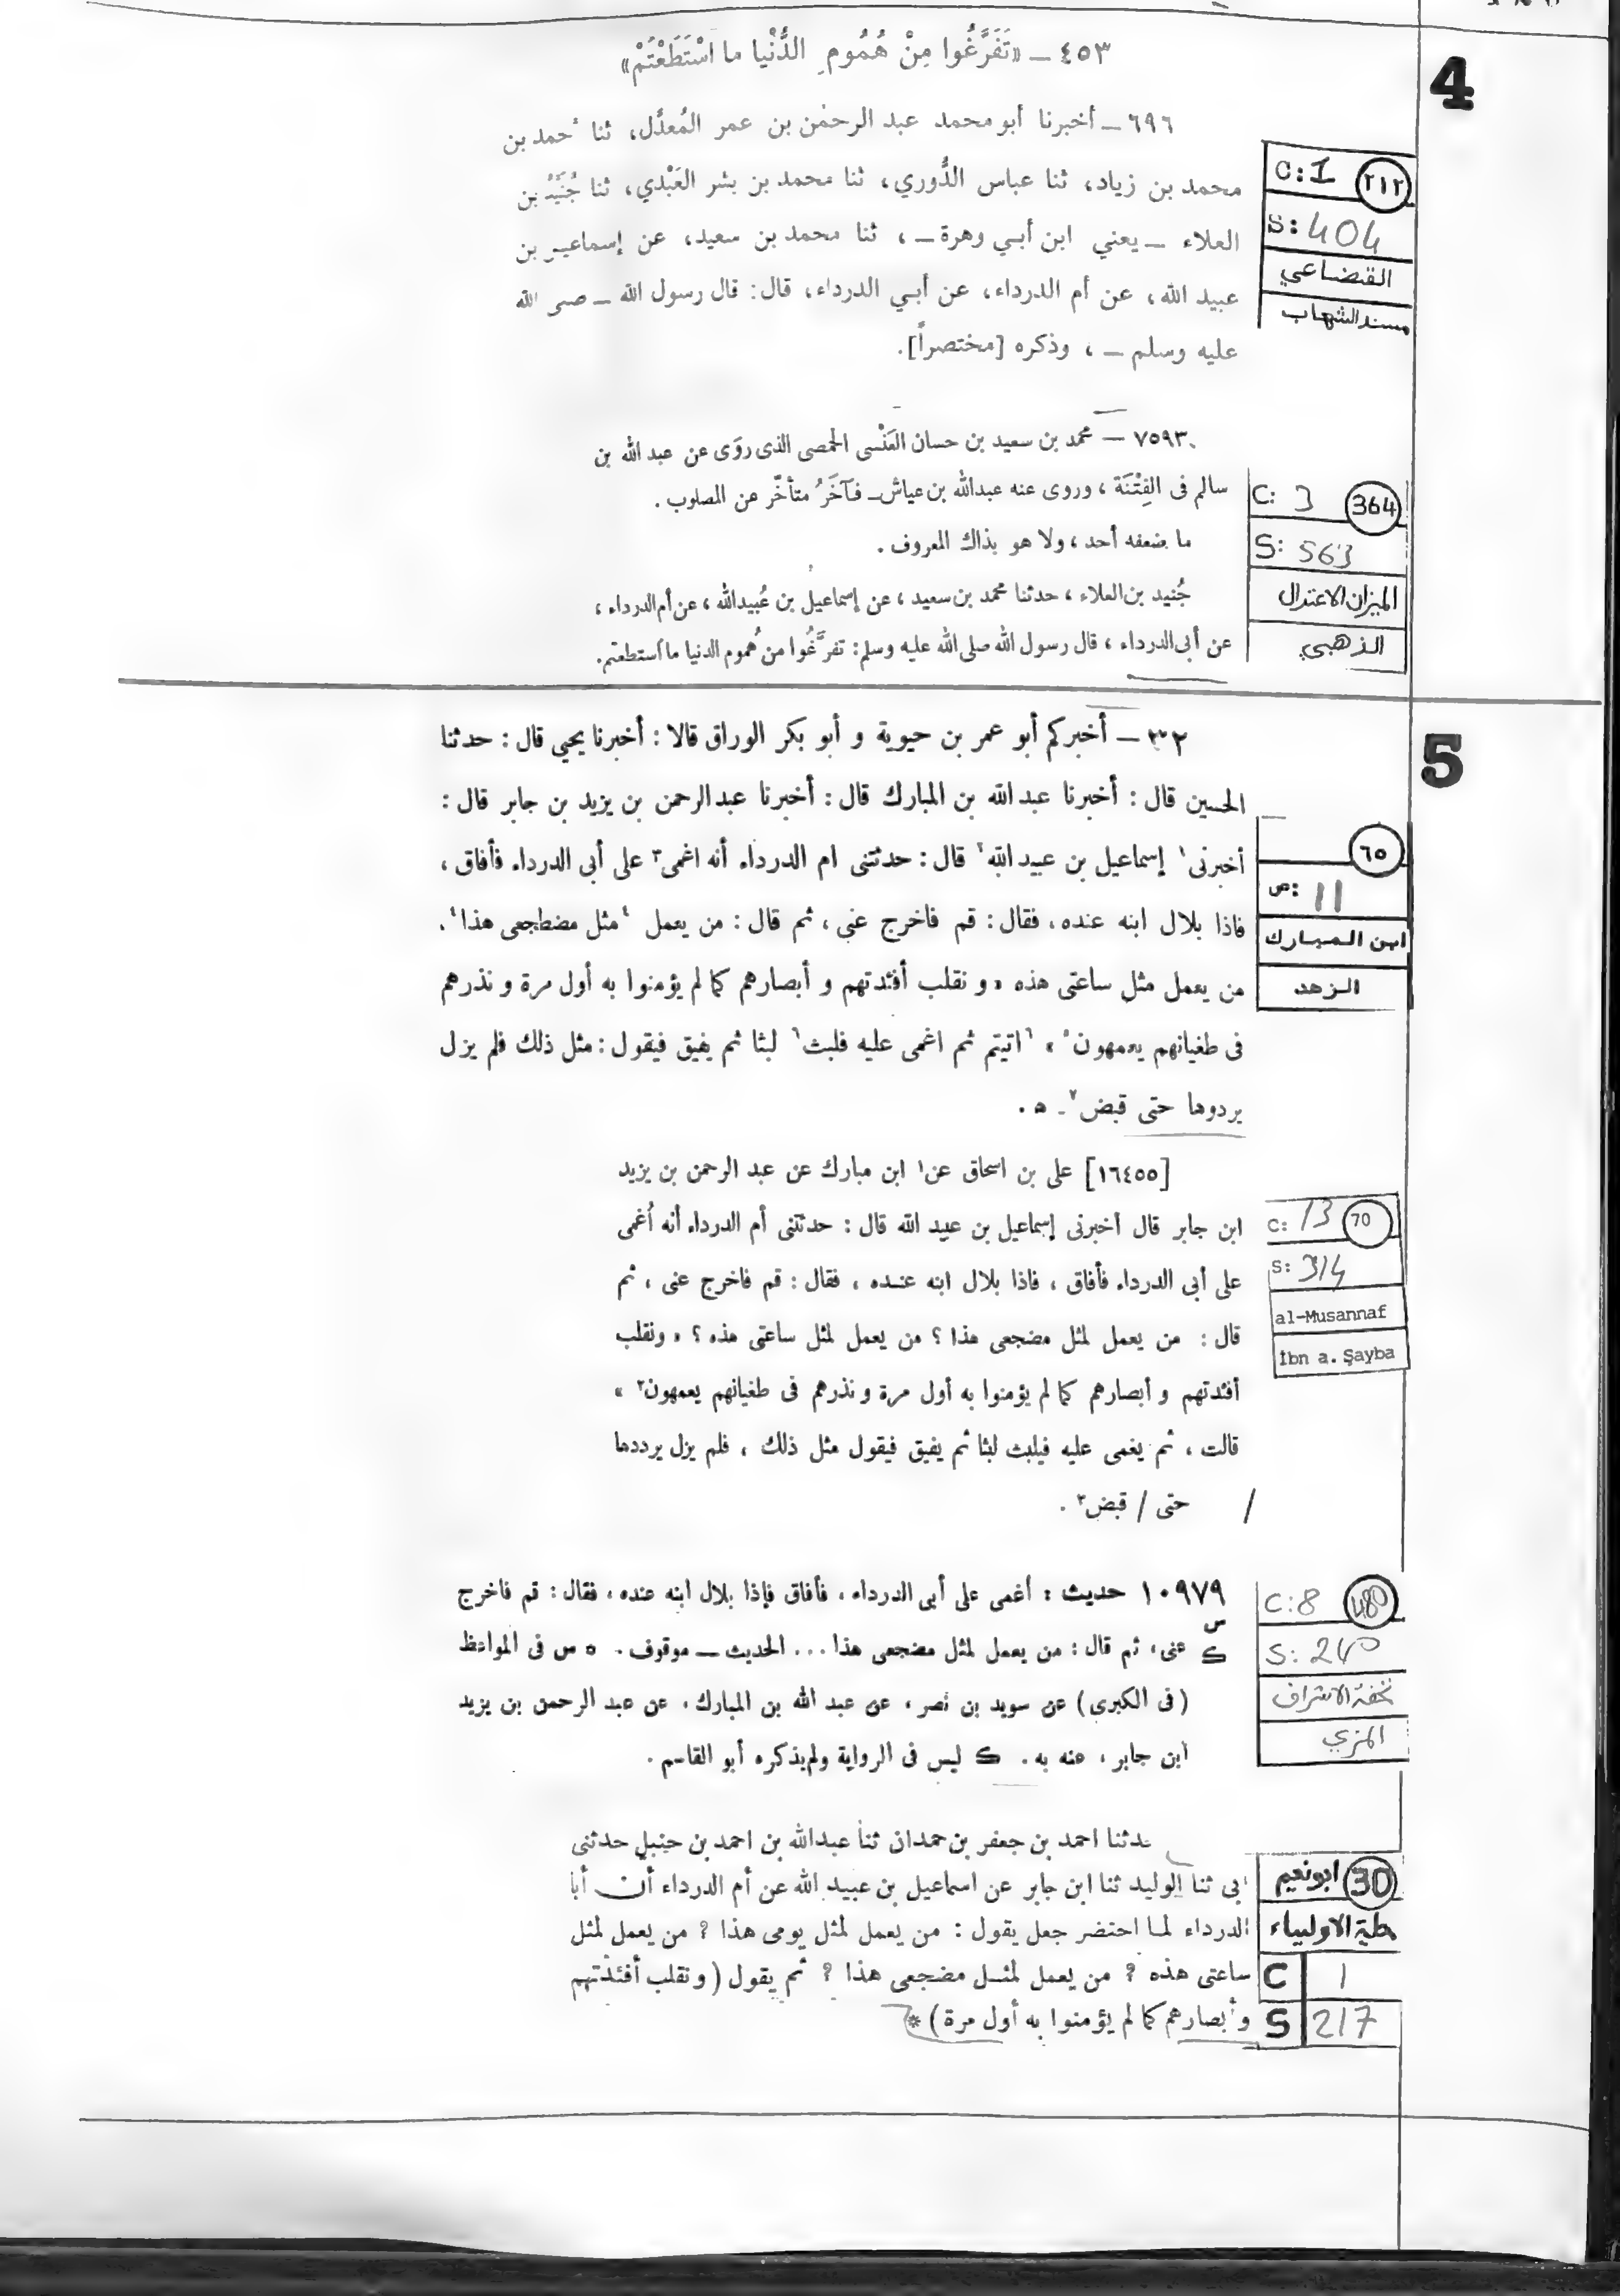 4
٤٥٣ – «تَفَرَّغُوا مِنْ هُمُومِ الدُّنْيا ما اسْتَطَعْتُمْ»
٦٩٦ – أخبرنا أبو محمد عبد الرحمٰن بن عمر المُعدَّل، ثنا أحمد بن
محمد بن زياد، ثنا عباس الدُّوري، ثنا محمد بن بشر العَبْدي، ثنا جُنَيْدُ بن
العلاء – يعني ابن أبي وهرة – ، ثنا محمد بن سعيد، عن إسماعيل بن
عبيد الله، عن أم الدرداء، عن أبي الدرداء، قال: قال رسول الله – صلى الله
عليه وسلم – ، وذكره [مختصراً].
C: I ٢١٢
S: 404
القضاعي
مسند الشهاب
٧٥٩٣ – محمد بن سعيد بن حسان العَنْسى الحمصى الذى روَى عن عبد الله بن
سالم فى الفِتْنَة ، وروى عنه عبدالله بن عياش – فآخَرُ متأخّر عن المصلوب .
ما ضعفه أحد ، ولا هو بذاك المعروف .
جُنيد بن العلاء ، حدثنا محمد بن سعيد ، عن إسماعيل بن عُبيدالله ، عن أم الدرداء ،
عن أبى الدرداء ، قال رسول الله صلى الله عليه وسلم : تفرَّغُوا من هُموم الدنيا ما استطعتم.
C: 3 364
S: 563
الميزان الاعتدال
الذهبي
5
٣٢ – أخبركم أبو عمر بن حيوية و أبو بكر الوراق قالا : أخبرنا يحيي قال : حدثنا
الحسين قال : أخبرنا عبد الله بن المبارك قال : أخبرنا عبد الرحمن بن يزيد بن جابر قال :
أخبرنى١ إسماعيل بن عبيد الله٢ قال : حدثتنى ام الدرداء أنه اغمى٣ على أبى الدرداء فأفاق ،
فاذا بلال ابنه عنده ، فقال : قم فاخرج عنى ، ثم قال : من يعمل ٤مثل مضطجعى هذا٤ .
من يعمل مثل ساعتى هذه « و نقلب أفئدتهم و أبصارهم كما لم يؤمنوا به أول مرة و نذرهم
فى طغيانهم يعمهون٥ » ٦اتيتم ثم اغمى عليه فلبث٦ لبثا ثم يفيق فيقول : مثل ذلك فلم يزل
يردوها حتى قبض٧ـ ه .
٦٥
ص: 11
ابن المبارك
الزهد
[١٦٤٥٥] على بن اسحاق عن١ ابن مبارك عن عبد الرحمن بن يزيد
ابن جابر قال أخبرنى إسماعيل بن عبيد الله قال : حدثتنى أم الدرداء أنه أُغمى
على أبى الدرداء فأفاق ، فاذا بلال ابنه عنده ، فقال : قم فاخرج عنى ، ثم
قال : من يعمل لمثل مضجعى هذا ؟ من يعمل لمثل ساعتى هذه ؟ « ونقلب
أفئدتهم و أبصارهم كما لم يؤمنوا به أول مرة و نذرهم فى طغيانهم يعمهون٢ »
قالت ، ثم يغمى عليه فيلبث لبثا ثم يفيق فيقول مثل ذلك ، فلم يزل يرددها
/ حتى / قبض٣ .
C: 13 70
S: 314
al-Musannaf
İbn a. Şayba
١٠٩٧٩ حديث : أغمى على أبى الدرداء ، فأفاق فإذا بلال ابنه عنده ، فقال : قم فاخرج
س
ك عنى ، ثم قال : من يعمل لمثل مضجعى هذا ... الحديث – موقوف . ه س فى المواعظ
( فى الكبرى ) عن سويد بن نصر ، عن عبد الله بن المبارك ، عن عبد الرحمن بن يزيد
ابن جابر ، عنه به . ك ليس فى الرواية ولم يذكره أبو القاسم .
C: 8 480
S: 240
تحفة الاشراف
المزي
حدثنا احمد بن جعفر بن حمدان ثنا عبدالله بن احمد بن حنبل حدثنى
ابى ثنا الوليد ثنا ابن جابر عن اسماعيل بن عبيد الله عن أم الدرداء أن أبا
الدرداء لما احتضر جعل يقول : من يعمل لمثل يومى هذا ؟ من يعمل لمثل
ساعتى هذه ؟ من يعمل لمثل مضجعى هذا ؟ ثم يقول ( ونقلب أفئدتهم
وأبصارهم كما لم يؤمنوا به أول مرة ) *
ابونعيم 30
حلية الاولياء
C 1
S 217